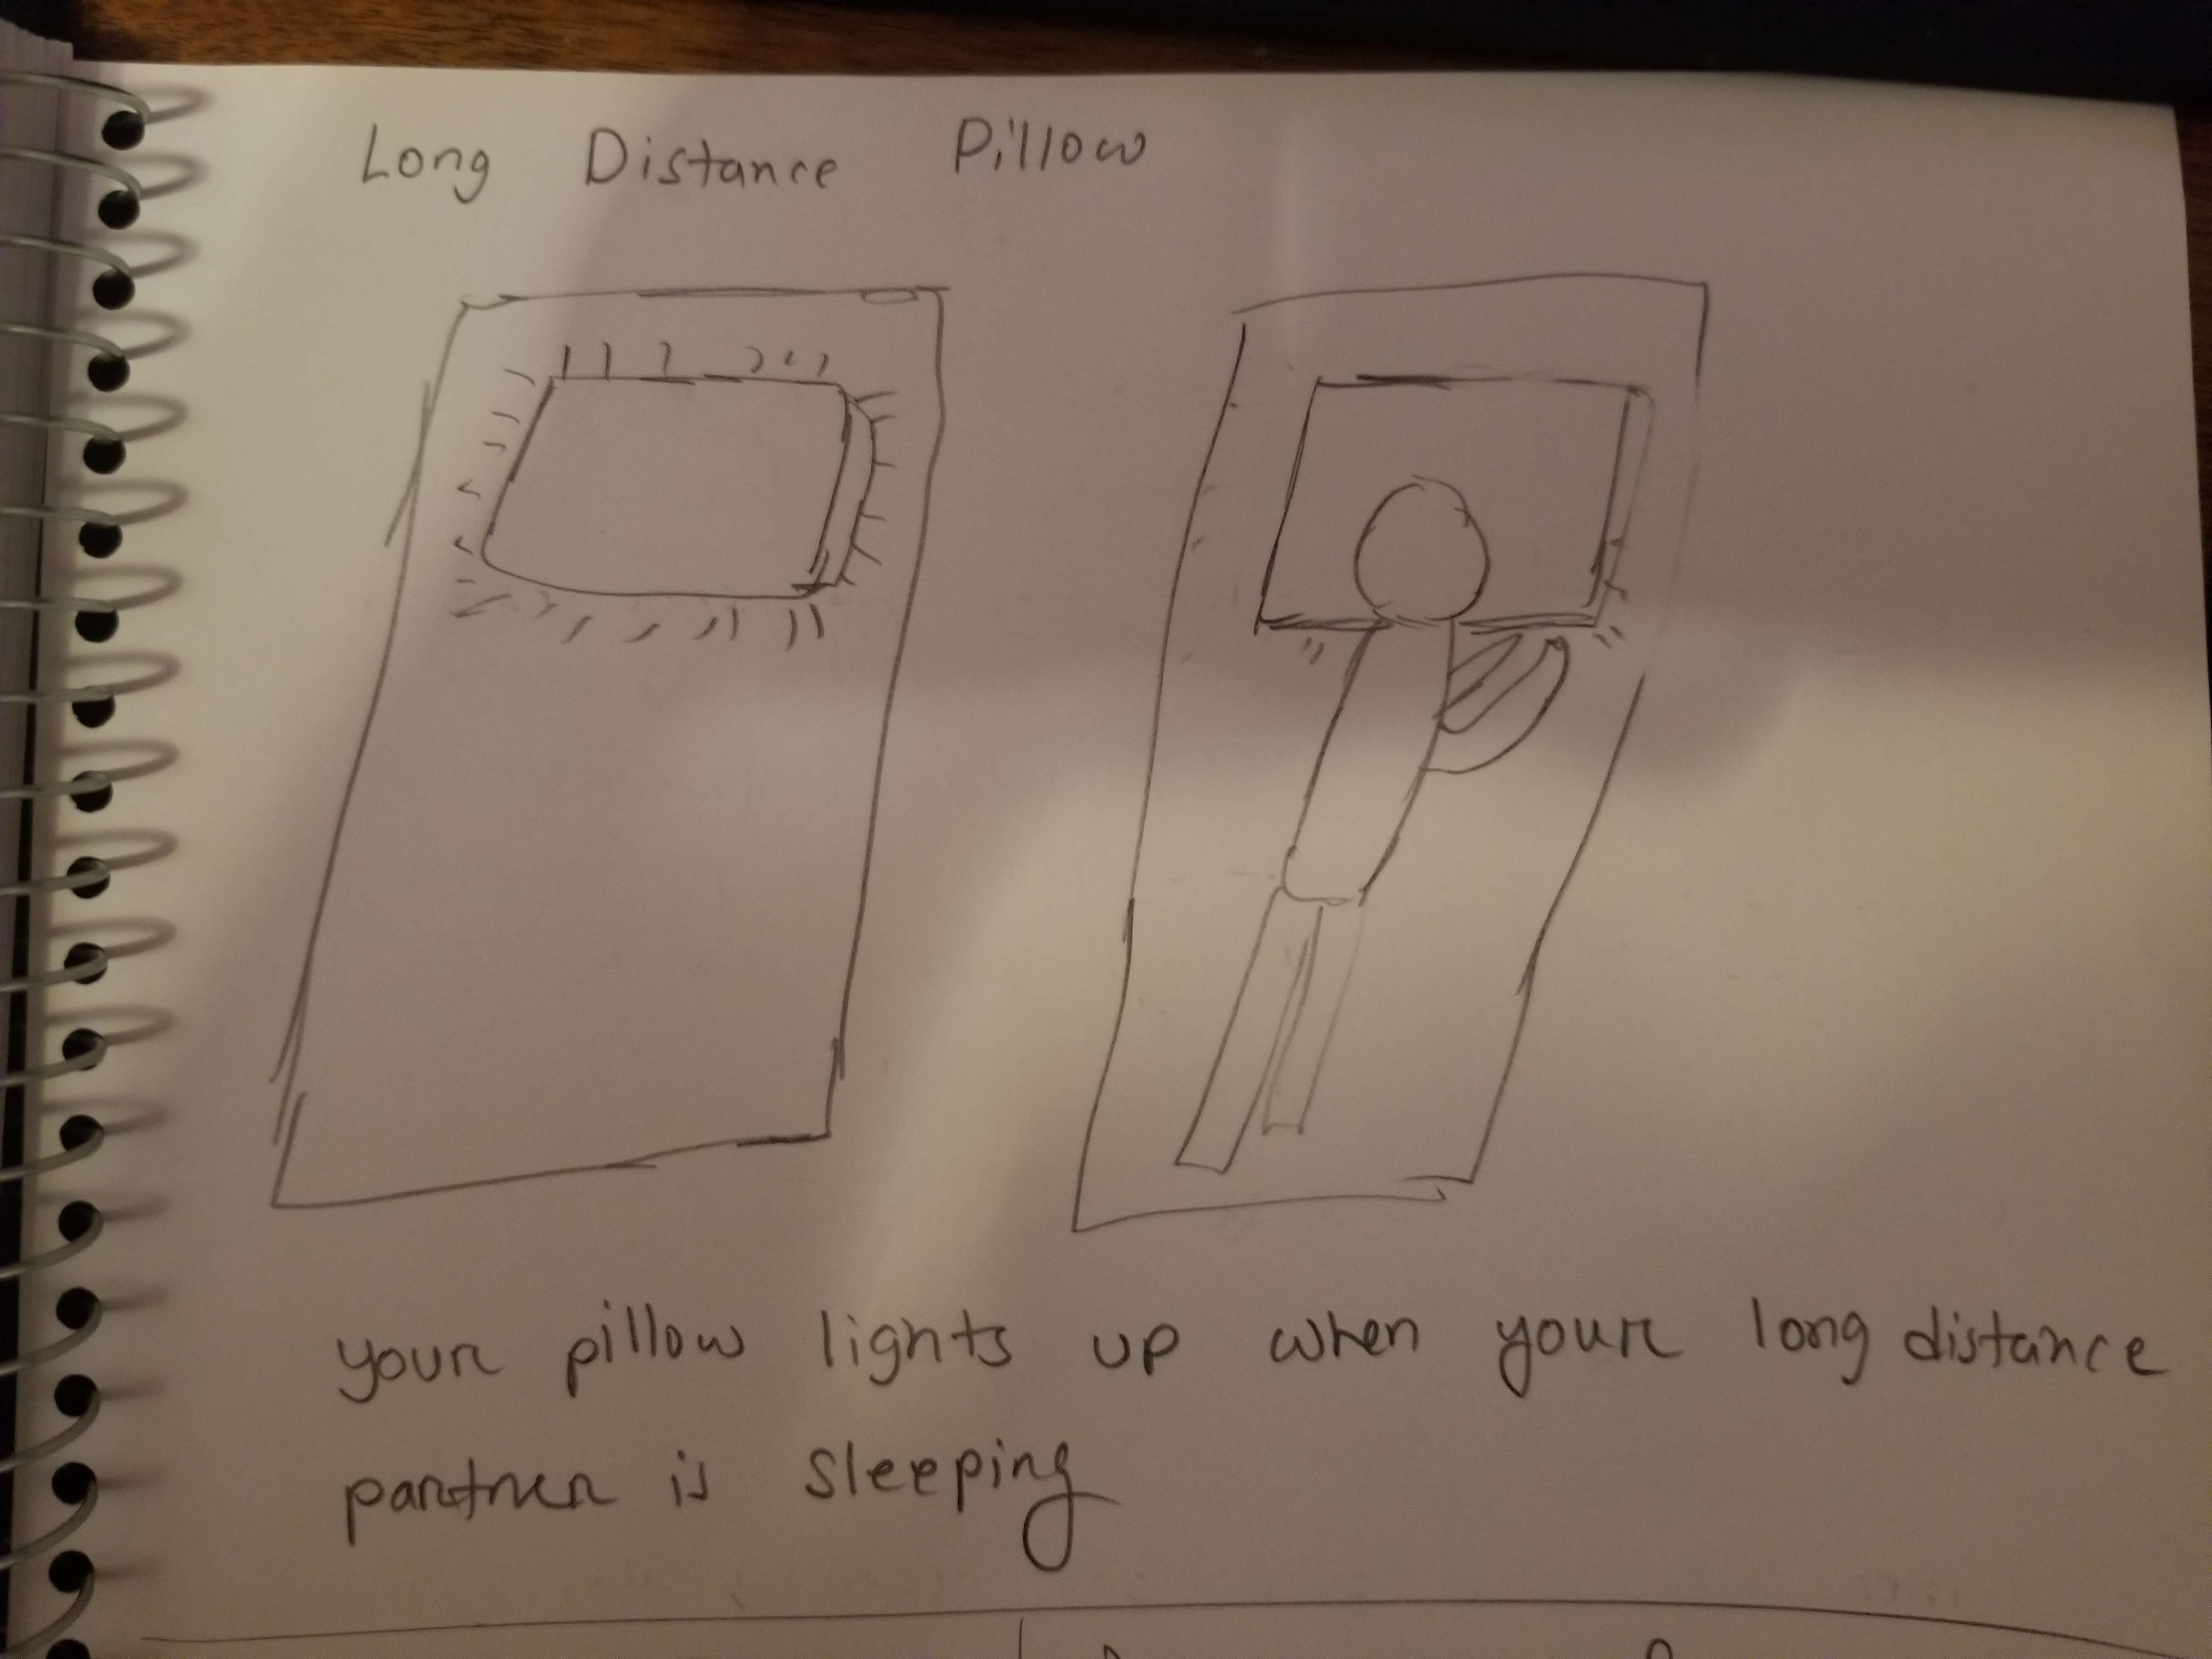 Long Distance Pillow
your pillow lights up when your long distance
partner is sleeping